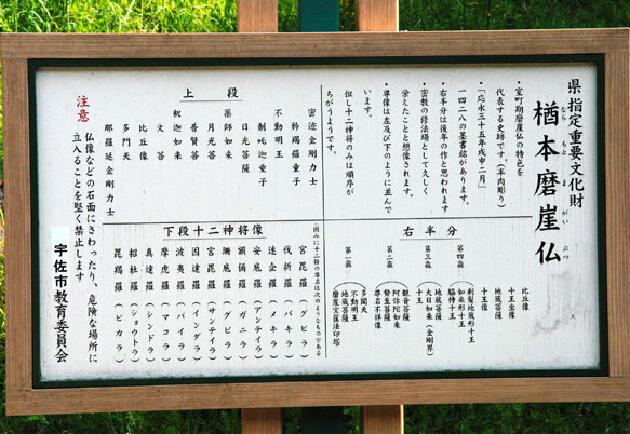 県指定重要文化財
楢本磨崖仏
なら もと ま がい ぶつ
・室町期磨崖仏の特色を
代表する史跡です(半肉彫り)
・「応永三十五年戊申二月」
一四二八の墨書銘があります。
・右半分は後年の作と思われます
・密教の修法場として久しく
栄えたことと想像されます。
・尊像は左及び下のように並んで
います。
但し十二神将のみは順序が
ちがうようです。
上段
密迹金剛力士
矜羯羅童子
不動明王
制吒迦童子
日光菩薩
薬師如来
月光菩薩
普賢菩薩
釈迦如来
文菩
比丘像
多門天
那羅延金剛力士
右半分
比丘像
十王坐像
地蔵菩薩
十王像
第四龕
十王
地蔵菩薩
大日如来(金剛界)
第三龕
十王
観音菩薩
阿弥陀如来
勢至菩薩
尊名不詳像
第二龕
多聞天
不動明王
地蔵菩薩
第一龕
下段十二神将像
宮毘羅(クビラ)
伐折羅(バキラ)
迷企羅(メキラ)
安底羅(アンテイラ)
頞儞羅(ガニラ)
珊底羅
宮毘羅
因達羅(インダラ)
波夷羅(バイラ)
摩虎羅(マコラ)
真達羅(シンドラ)
招杜羅(ショウトラ)
毘羯羅(ビカラ)
注意
仏像などの石面にさわったり、危険な場所に
立入ることを堅く禁止します
宇佐市教育委員会